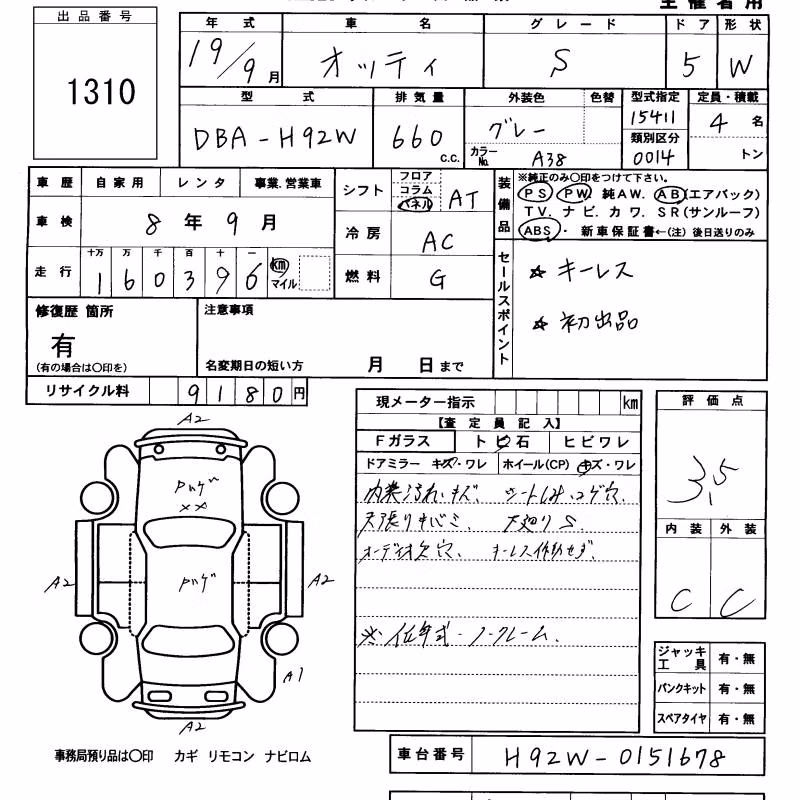 出品番号
1310
年式 車名 グレード ドア 形状
19/9月 オッティ S 5 W
型式 排気量 外装色 色替 型式指定 定員・積載
DBA-H92W 660 c.c. グレー 15411 4名
カラーNo. A38 類別区分 0014 トン
車歴 自家用 レンタ 事業.営業車
車検 8年9月
走行 十万 万 千 百 十 一
160396 km マイル
シフト フロア コラム パネル AT
冷房 AC
燃料 G
装備品 ※純正のみ〇印をつけて下さい。
PS PW 純AW. AB(エアバック)
TV. ナビ. カワ. SR(サンルーフ)
ABS・ 新車保証書←(注) 後日送りのみ
セールスポイント
☆ キーレス
☆ 初出品
修復歴 箇所
有
(有の場合は〇印を)
注意事項
名変期日の短い方 月 日まで
リサイクル料 9180円
現メーター指示 km
【査定員記入】
Fガラス トビ石 ヒビワレ
ドアミラー キズ・ワレ ホイール(CP) キズ・ワレ
内装汚れ、キズ、 シートしみ、コゲ穴、
天張りキバミ、 下廻りS
オーディオ欠穴、 キーレス作動せず、
※低年式・ノークレーム.
評価点
3.5
内装 外装
C C
A2
ハゲ
××
A2
ハゲ
A2
A1
A2
ジャッキ工具 有・無
パンクキット 有・無
スペアタイヤ 有・無
事務局預り品は〇印 カギ リモコン ナビロム
車台番号 H92W-0151678